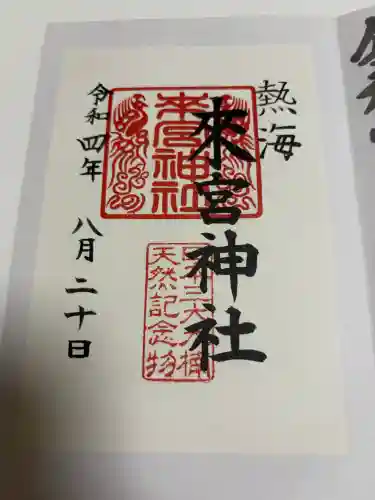 熱海
來宮神社
来宮神社
日本三大大楠
天然記念物
令和四年
八月二十日